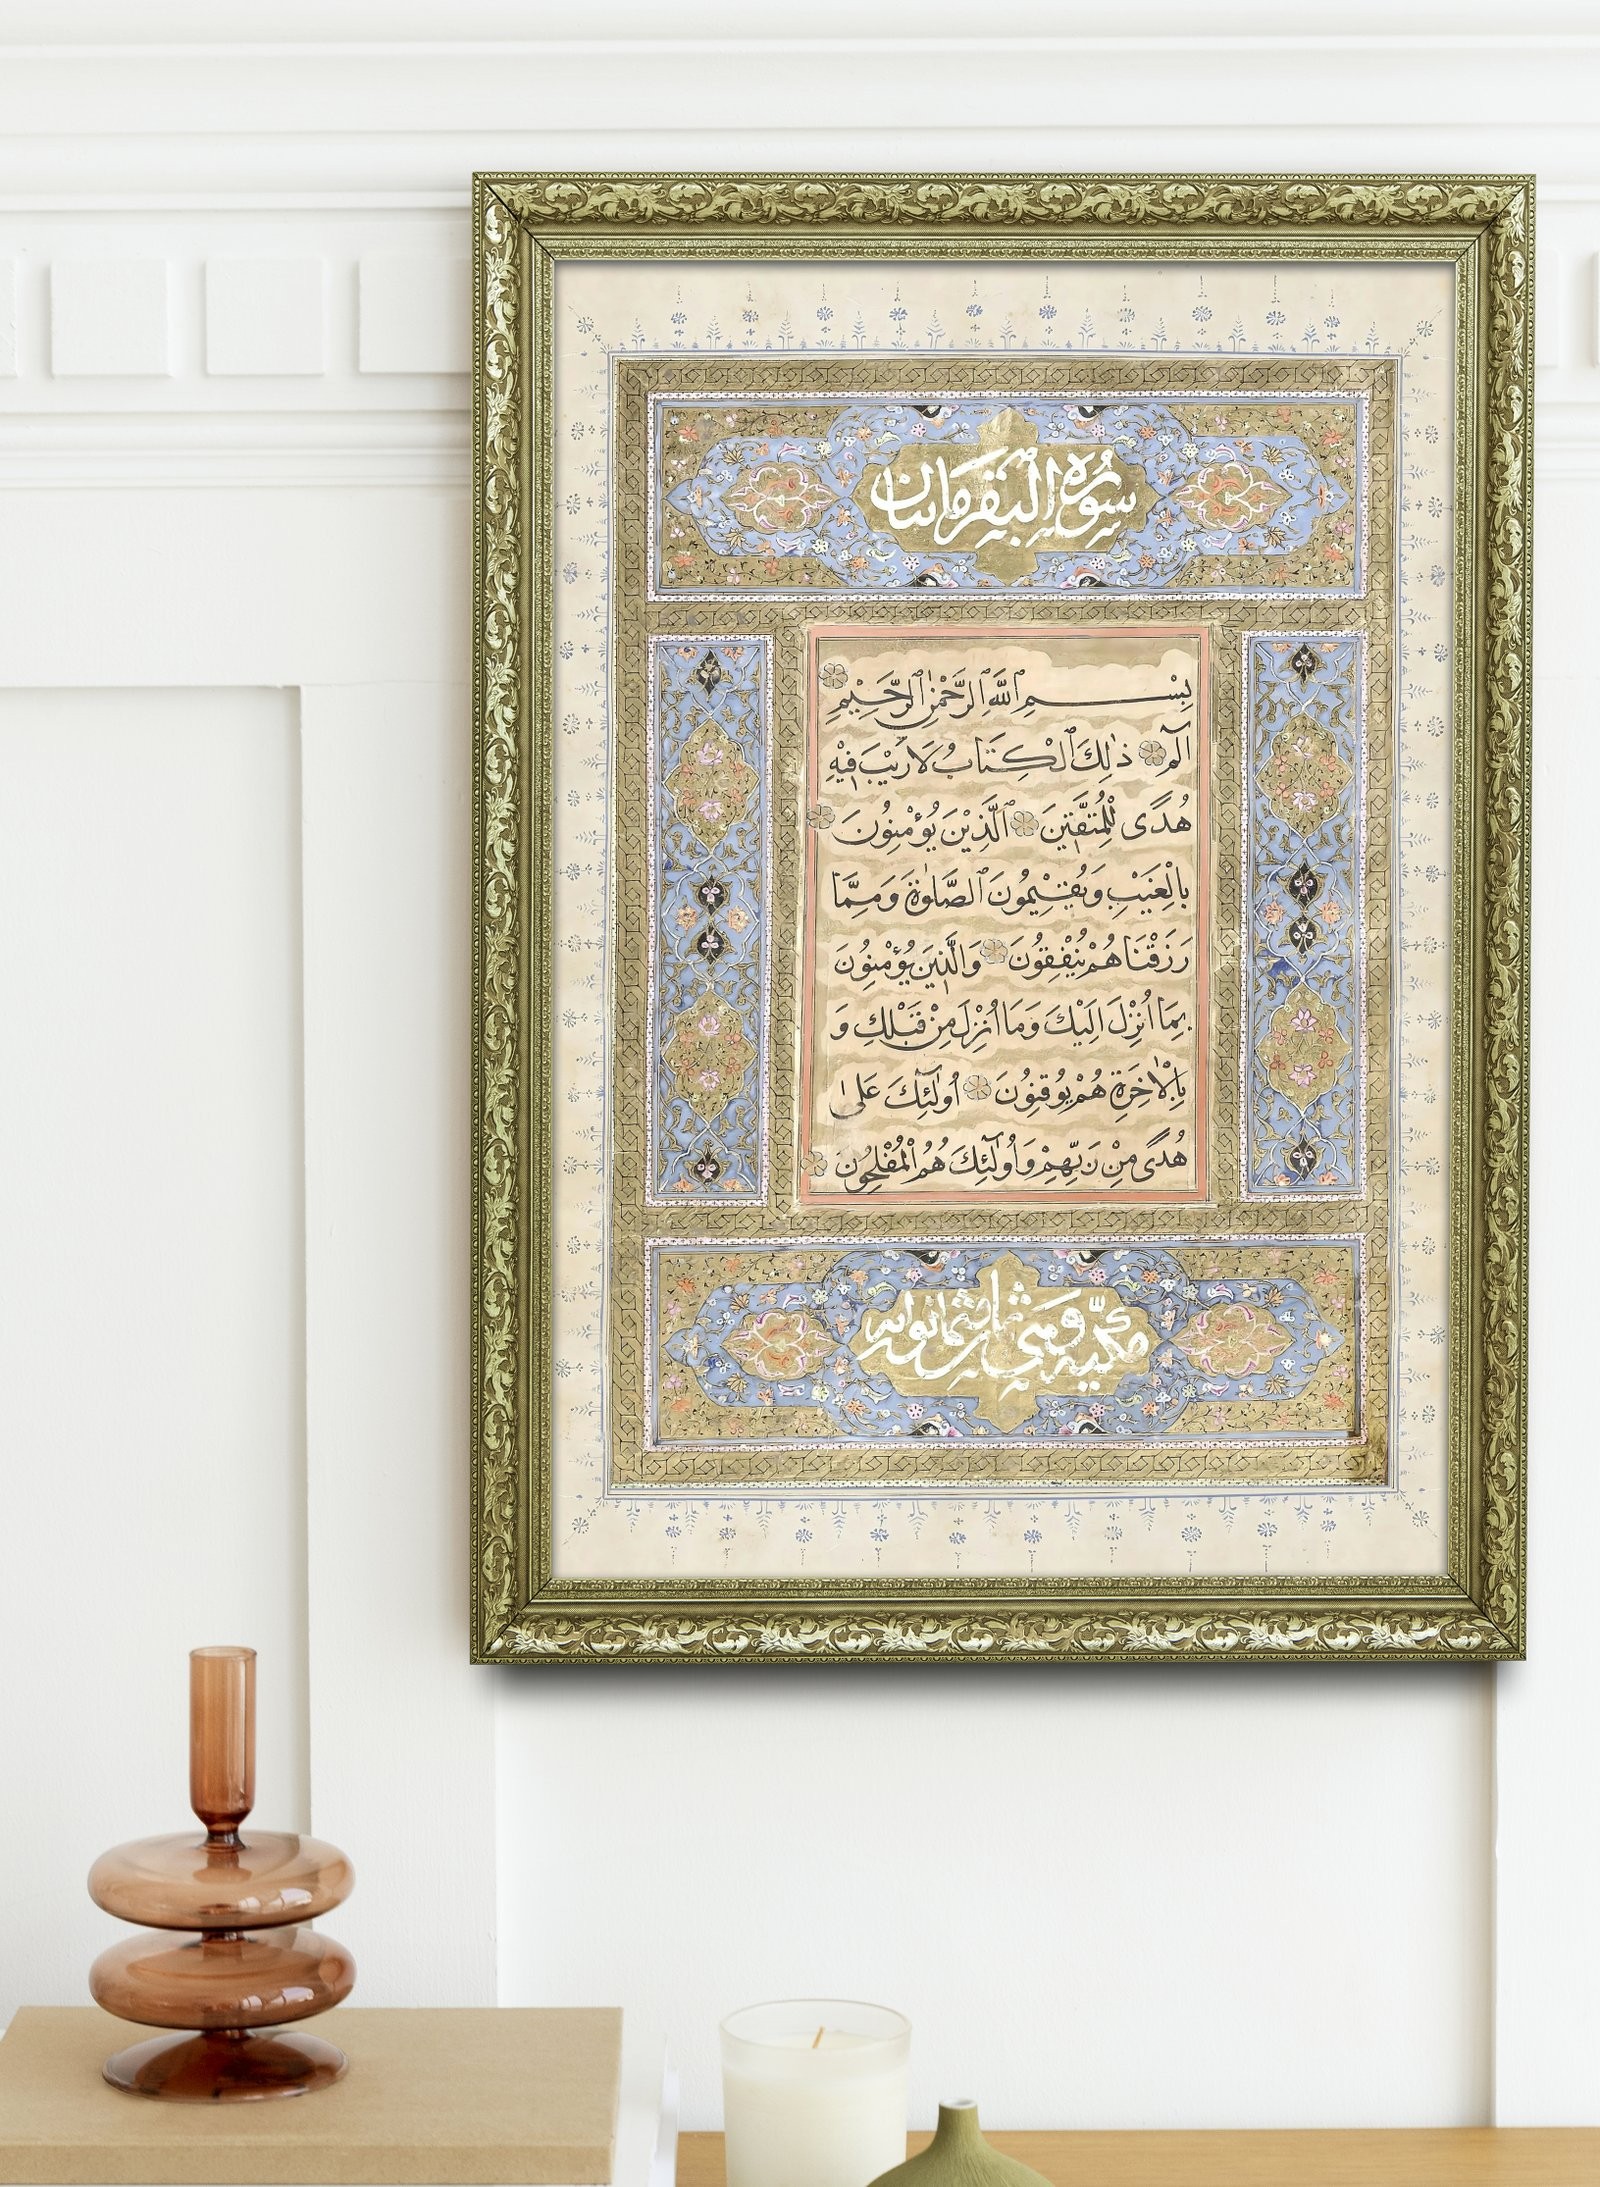 سورة البقرة مائتان
بِسْمِ ٱللَّهِ ٱلرَّحْمٰنِ ٱلرَّحِيْمِ
الٓمٓ ذٰلِكَ ٱلْكِتَابُ لَا رَيْبَ فِيْهِ
هُدًى لِلْمُتَّقِيْنَ ٱلَّذِيْنَ يُؤْمِنُونَ
بِالْغَيْبِ وَيُقِيْمُونَ ٱلصَّلٰوةَ وَمِمَّا
رَزَقْنَاهُمْ يُنْفِقُونَ وَالَّذِيْنَ يُؤْمِنُونَ
بِمَا اُنْزِلَ اِلَيْكَ وَمَا اُنْزِلَ مِنْ قَبْلِكَ وَ
بِالْاٰخِرَةِ هُمْ يُوقِنُونَ اُولٰٓئِكَ عَلٰى
هُدًى مِنْ رَبِّهِمْ وَاُولٰٓئِكَ هُمُ الْمُفْلِحُونَ
وثمانون آية